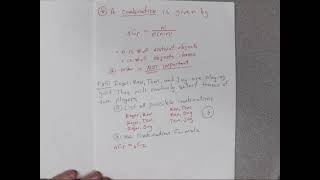 A combination is given by
nCr = n! / r!(n-r)!
• n is # of distinct objects
• r is # of objects chosen
• order is NOT important
Ex5) Roger, Ken, Tom, and Jay are playing
golf. They will randomly select teams of
two players.
a) List all possible combinations
Roger, Ken Ken, Tom
Roger, Tom Ken, Jay
Roger, Jay Tom, Jay
6
b) Use combination formula